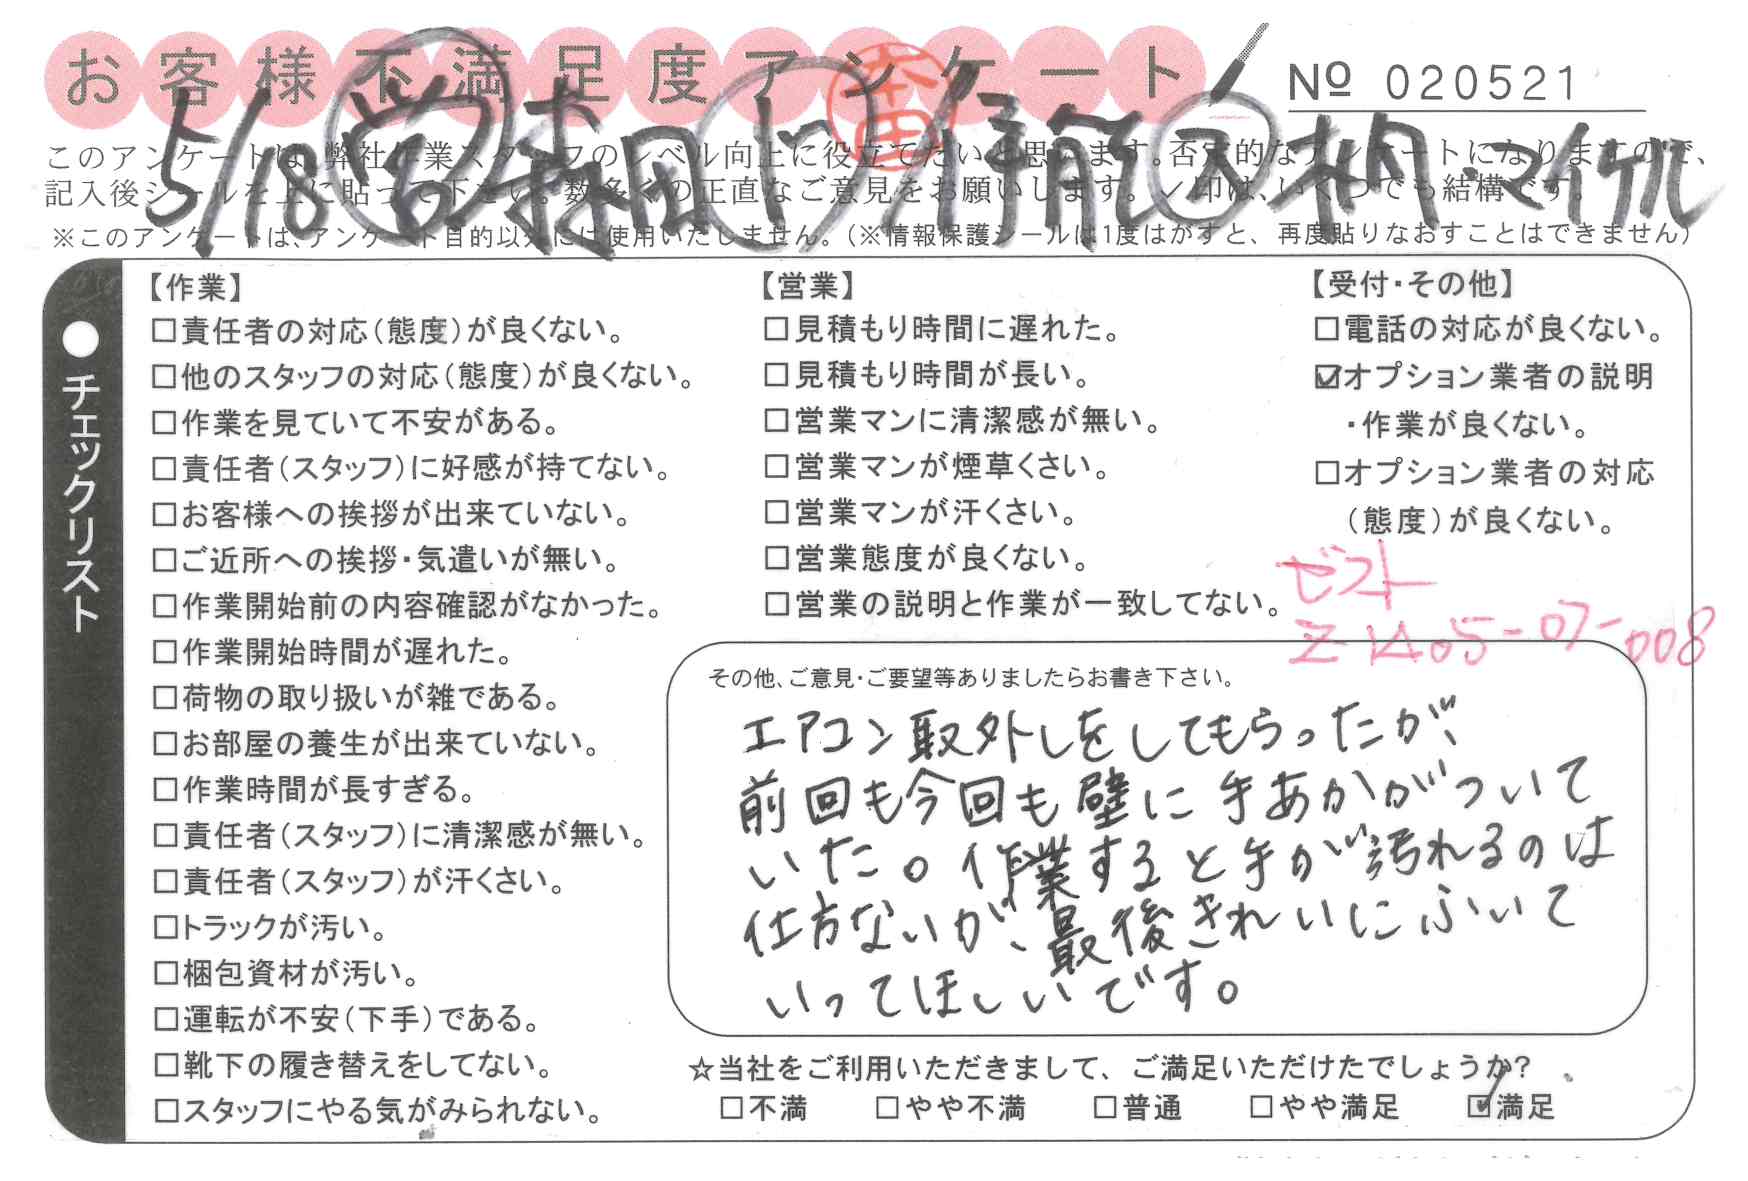 お客様不満足度アンケート
№ 020521
5/18 営 森田 ド 本田
このアンケートは、弊社作業スタッフのレベル向上に役立てたいと思います。否定的なアンケートになりますので、
記入後シールを上に貼って下さい。数多くの正直なご意見をお願いします。✓印は、いくつでも結構です。
※このアンケートは、アンケート目的以外には使用いたしません。（※情報保護シールは1度はがすと、再度貼りなおすことはできません）
●チェックリスト
【作業】
□責任者の対応（態度）が良くない。
□他のスタッフの対応（態度）が良くない。
□作業を見ていて不安がある。
□責任者（スタッフ）に好感が持てない。
□お客様への挨拶が出来ていない。
□ご近所への挨拶・気遣いが無い。
□作業開始前の内容確認がなかった。
□作業開始時間が遅れた。
□荷物の取り扱いが雑である。
□お部屋の養生が出来ていない。
□作業時間が長すぎる。
□責任者（スタッフ）に清潔感が無い。
□責任者（スタッフ）が汗くさい。
□トラックが汚い。
□梱包資材が汚い。
□運転が不安（下手）である。
□靴下の履き替えをしてない。
□スタッフにやる気がみられない。
【営業】
□見積もり時間に遅れた。
□見積もり時間が長い。
□営業マンに清潔感が無い。
□営業マンが煙草くさい。
□営業マンが汗くさい。
□営業態度が良くない。
□営業の説明と作業が一致してない。
【受付・その他】
□電話の対応が良くない。
☑オプション業者の説明
・作業が良くない。
□オプション業者の対応
（態度）が良くない。
ゼスト
その他、ご意見・ご要望等ありましたらお書き下さい。
エアコン取外しをしてもらったが、
前回も今回も壁に手あかがついて
いた。作業すると手が汚れるのは
仕方ないが、最後きれいにふいて
いってほしいです。
☆当社をご利用いただきまして、ご満足いただけたでしょうか？
□不満 □やや不満 □普通 □やや満足 ☑満足